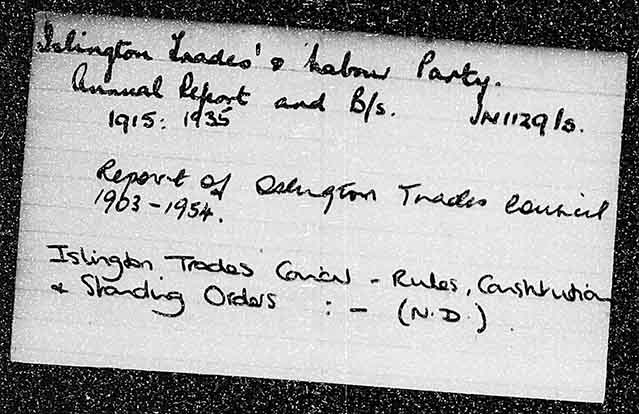 Islington Trades' & Labour Party.
Annual Report and B/s. JN1129/s.
1915: 1935
Report of Islington Trades Council
1903-1954.
Islington Trades Council - Rules, Constitution
& Standing Orders : - (N.D.)